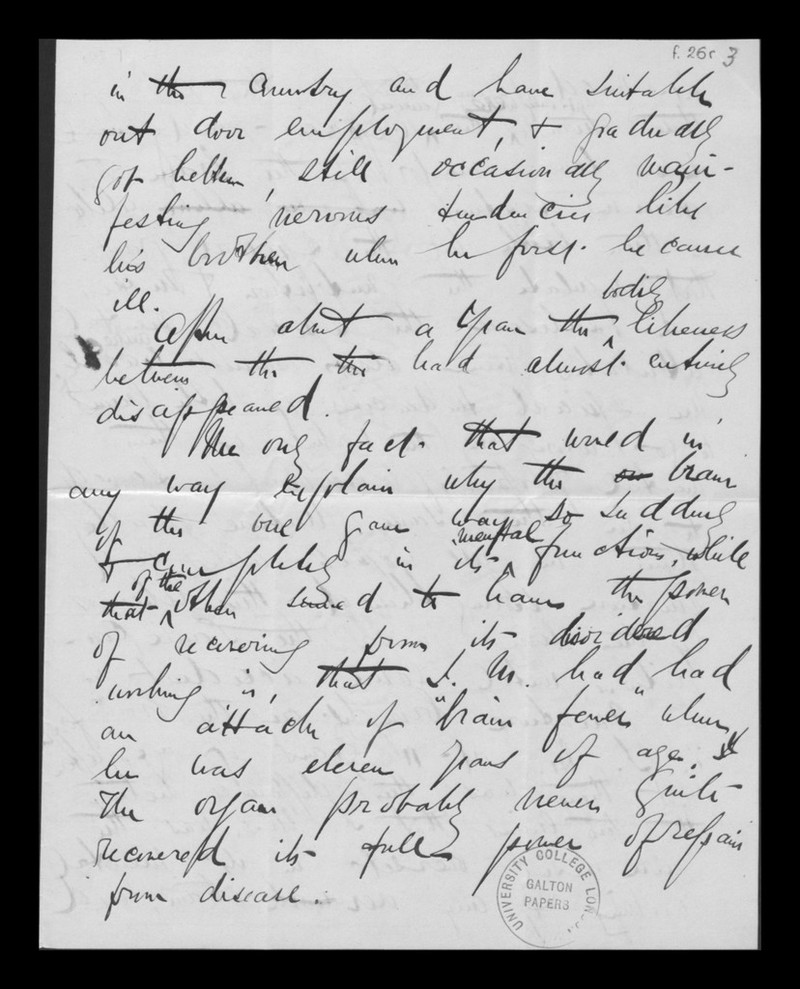 f. 26r 3
in the country and have suitable
out door employment, & gradually
got better, still occasionally mani-
festing nervous tendencies like
his brother when he first became
ill.
bodily
After about a year the likeness
between the two had almost entirely
disappeared.
The only fact that would in
any way explain why the one brain
of the one gave way so suddenly
mental
& completely in its function, while
of the
that other seemed to have the power
of recovering from its disordered
working is, that J. M. had had
an attack of "brain fever" when
he was eleven years of age. &
The organ probably never quite
recovered its full power of repair
from disease.
UNIVERSITY COLLEGE LONDON
GALTON
PAPERS